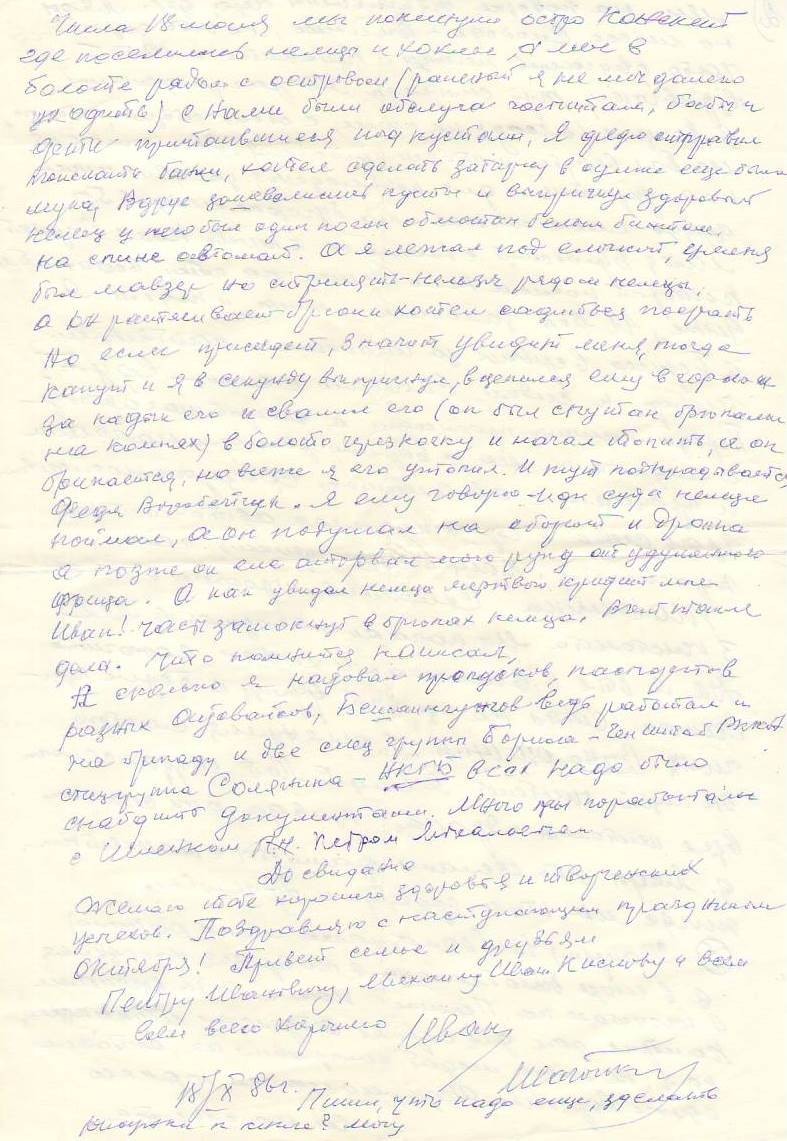 Числа 18 июня мы покинули остро
где поселились немцы и хохлы, а мы в
болоте рядом с островом (раненый я не мог далеко
уходить) с нами были обслуга бабы и
дети притаившиеся под кустами, Я Федю отправил
поискать хотел сделать затирку в сумке еще была
мука, Вдруг зашевелились кусты и здоровый
немец у него был один погон обмотан белым бинтом,
на спине автомат. А я лежал под елочкой, у меня
был маузер но стрелять-нельзя рядом немцы,
а он растягивает брюки хотел садиться
Но если присядет, значит увидит меня, тогда
капут и я в секунду выпрыгнул, вцепился ему в горло и
за кадык его и свалил его (он был спутан брюками
на коленях) в болото через кочку и начал топить, а он
брыкается, но все же я его утопил. И тут подкрадывается
Федя Я ему говорю - иди сюда немца
поймал, а он побежал на оборот и
а позже он еле оторвал мою руку от удушенного
фрица. А как увидал немца мертвого кричит мне
Иван! часы замокнут в брюках немца. Вот такие
дела. Что помнится написал,
А сколько я пропусков, паспортов
разных ведь работал и
на бригаду и две спец группы Бориса - Ген штаб РККА
спецгруппа - НКГБ всех надо было
снабдить документами. Много мы поработали
с П.Н. Петром
До свидания
Желаю тебе хорошего здоровья и творческих
успехов. Поздравляю с наступающим праздником
Октября! Привет семье и друзьям
Петру Ивановичу, Михаилу Иван. и всем
всем всего хорошего Иван
18/X 86 г.
Пиши, что надо еще, зделать
рисунки к книге? могу